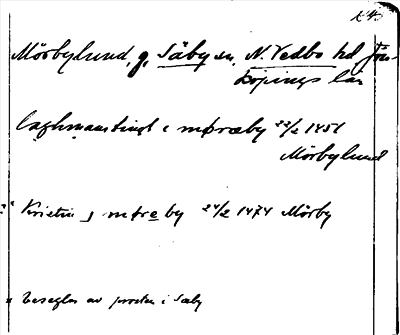 K 43
Mörbylund, g, Säby sn, N. Vedbo hd Jön-
köpings län
laghmanstingt i møræby 22/2 1451
Mörbylund
Kristin j møreby 24/2 1474 Mörby
beseglas av prosten i Säby